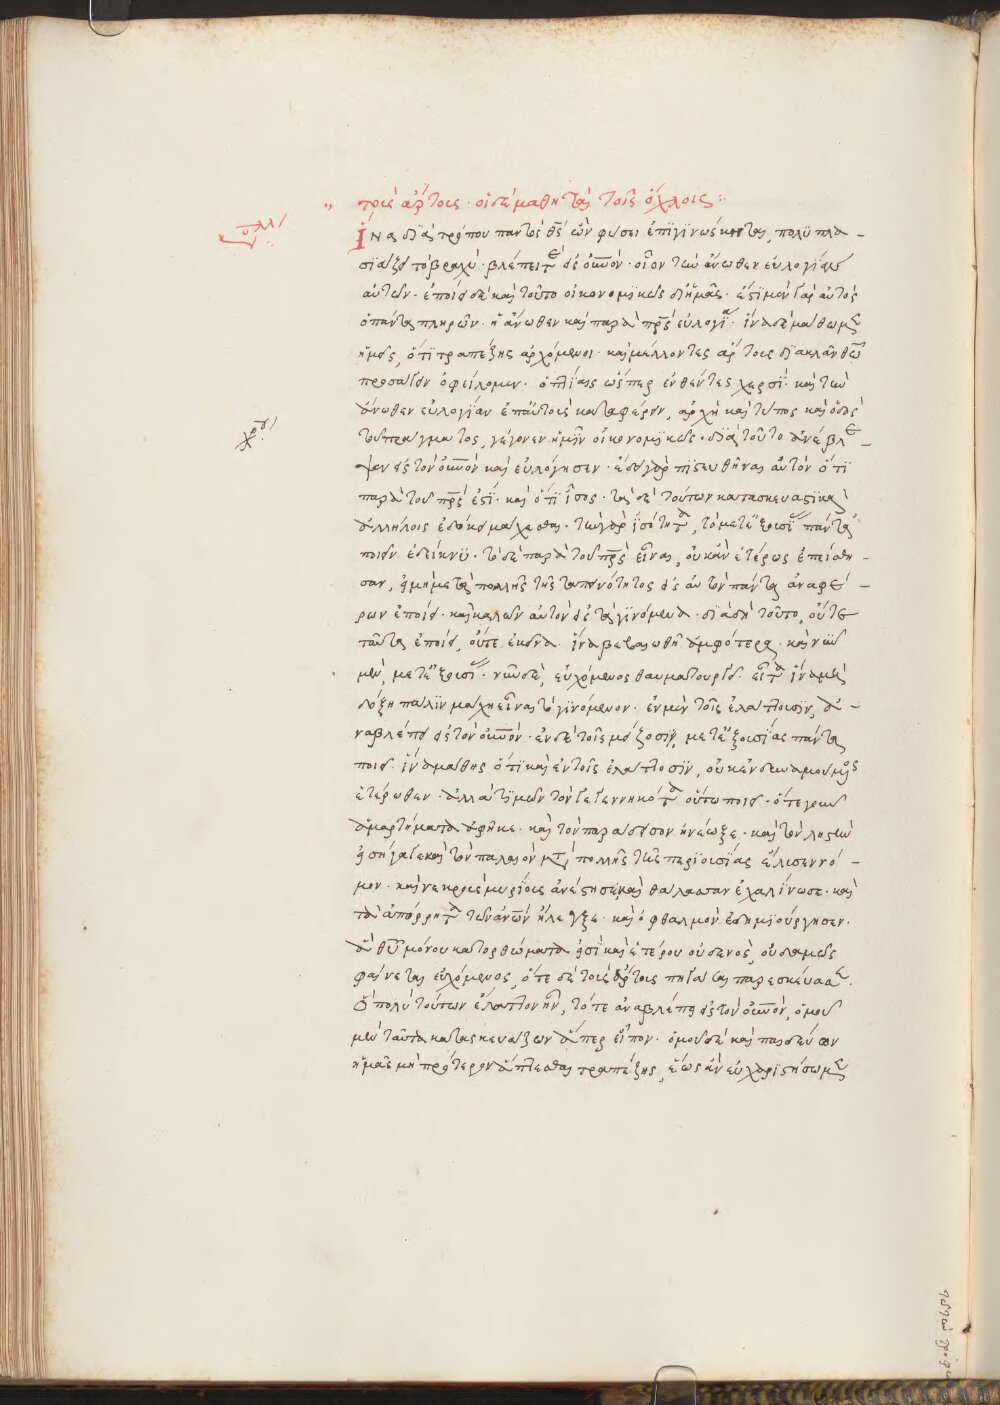 τοὺς ἄρτους· οἱ δὲ μαθηταὶ τοῖς ὄχλοις:
κυριλλ
Ἵνα διὰ τρόπου παντὸς θς ὢν φύσει ἐπιγινώσκηται, πολυπλα-
σιάζει τὸ βραχύ· βλέπει τε εἰς οὐνον· οἷον τὴν ἄνωθεν εὐλογίαν
αἰτῶν· ἐποίει δὲ καὶ τοῦτο οἰκονομικῶς δι' ἡμᾶς· ἔστι μὲν γὰρ αὐτὸς
ὁ πάντα πληρῶν· ἡ ἄνωθεν καὶ παρὰ πρς εὐλογία· ἵνα δὲ μάθωμεν
ἡμεῖς, ὅτι τραπέζης ἀρχόμενοι· καὶ μέλλοντες ἄρτους διακλᾶν θῶ
προσάγειν ὀφείλομεν· ὑπτίαις ὥσπερ ἐνθέντες χερσί· καὶ τὴν
ἄνωθεν εὐλογίαν ἐπ' αὐτοὺς καταφέρειν, ἀρχὴ καὶ τύπος καὶ ὁδὸς
τοῦ πράγματος, γέγονεν ἡμῖν οἰκονομικῶς· διὰ τοῦτο ἀνέβλε-
χρ
ψεν εἰς τὸν οὐνον καὶ εὐλόγησεν· ἔδει γὰρ πιστευθῆναι αὐτὸν ὅτι
παρὰ τοῦ πρς ἐστί· καὶ ὅτι ἴσος· τὰ δὲ τούτων κατασκευαστικὰ
ἀλλήλοις ἐδόκει μάχεσθαι· τὴν γὰρ ἰσότητα, τὸ μετ' ἐξουσίας πάντα
ποιεῖν ἐδείκνυ· τὸ δὲ παρὰ τοῦ πρς εἶναι, οὐκ ἂν ἑτέρως ἐπείσθη-
σαν, εἰ μὴ μετὰ πολλῆς τῆς ταπεινότητος εἰς αὐτὸν πάντα ἀναφέ-
ρων ἐποίει· καὶ καλῶν αὐτὸν εἰς τὰ γινόμενα· διὰ δὴ τοῦτο, οὔτε
ταῦτα ἐποίει, οὔτε ἐκεῖνα ἵνα βεβαιωθῆ ἀμφότερα· καὶ νῦν
μὲν, μετ' ἐξουσίας· νῦν δὲ, εὐχόμενος θαυματουργεῖ· εἶτα ἵνα μὴ
δόξη πάλιν μάχη εἶναι τὸ γινόμενον· ἐν μὲν τοῖς ἐλάττοσιν, ἀ-
ναβλέπει εἰς τὸν οὐνον· ἐν δὲ τοῖς μείζοσιν, μετ' ἐξουσίας πάντα
ποιεῖ· ἵνα μάθης ὅτι καὶ ἐν τοῖς ἐλάττοσιν, οὐκ ἐνδυναμούμενος
ἑτέρωθεν· ἀλλὰ τιμῶν τὸν γεγεννηκότα οὕτω ποιεῖ· ὅτε γοῦν
ἁμαρτήματα ἀφῆκε· καὶ τὸν παράδεισον ἠνέωξε· καὶ τὸν ληστὴν
εἰσήγαγε καὶ τὸν παλαιὸν μετὰ πολλῆς τῆς περιουσίας ἔλυσεν νό-
μον· καὶ νεκροὺς μυρίους ἀνέστησε, καὶ θάλασσαν ἐχαλίνωσε· καὶ
τὰ ἀπόρρητα τῶν ἀνων ἤλεγξε· καὶ ὀφθαλμὸν ἐδημιούργησεν·
ἃ θῦ μόνου κατορθώματά εἰσι καὶ ἑτέρου οὐδενὸς, οὐδαμῶς
φαίνεται εὐχόμενος, ὅτε δὲ τοὺς ἄρτους πηγάσαι παρεσκεύασεν·
ὃ πολὺ τούτων ἔλαττον ἦν, τότε ἀναβλέπει εἰς τὸν οὐνον, ὁμοῦ
μὲν ταῦτα κατασκευάζων ἅπερ εἶπον· ὁμοῦ δὲ καὶ παιδεύων
ἡμᾶς μὴ πρότερον ἅπτεσθαι τραπέζης, ἕως ἂν εὐχαριστήσωμεν